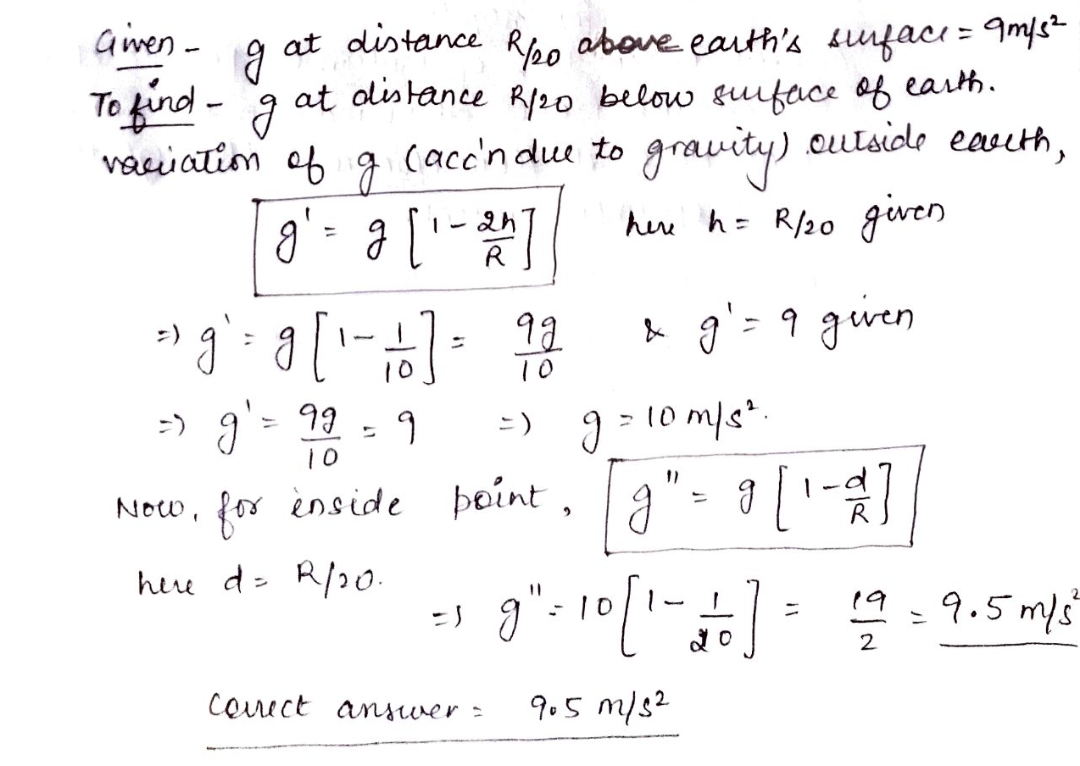 Given - g at distance R/20 above earth's surface = 9m/s²
To find - g at distance R/20 below surface of earth.
variation of g (acc'n due to gravity) outside earth,
g' = g [1 - 2h/R] here h = R/20 given
=) g' = g [1 - 1/10] = 9g/10 & g' = 9 given
=) g' = 9g/10 = 9 =) g = 10 m/s².
Now, for inside point, g" = g [1 - d/R]
here d = R/20.
=) g" = 10 [1 - 1/20] = 19/2 = 9.5 m/s²
Correct answer = 9.5 m/s²